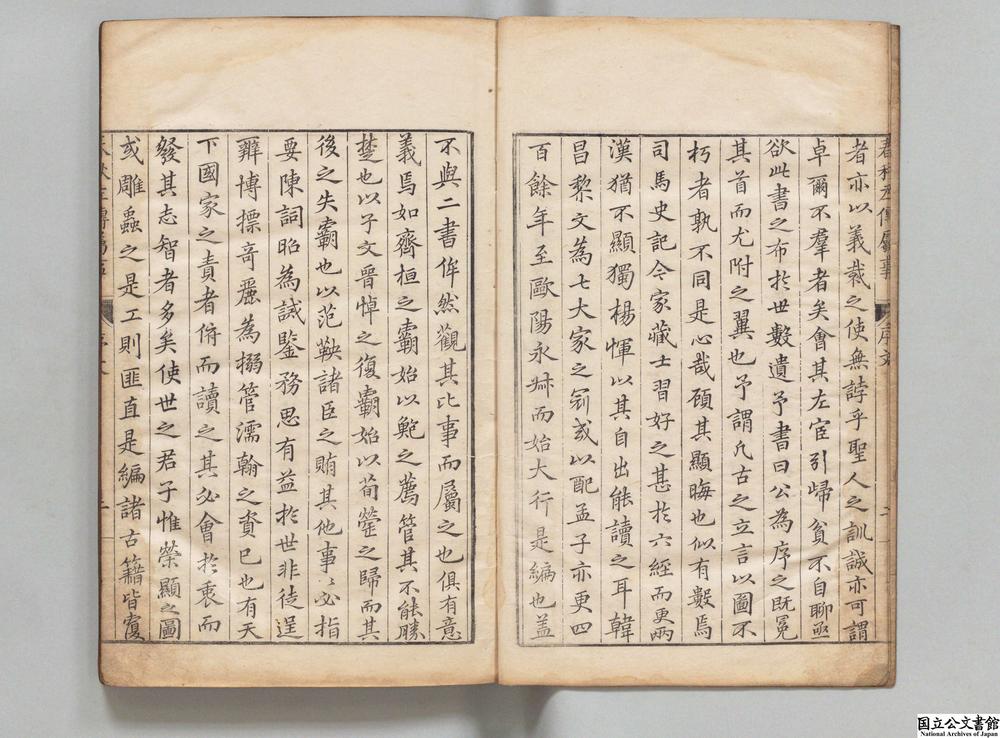 春秋左傳屬事
序文
二
者亦以義裁之使無誖乎聖人之訓誠亦可謂
卓爾不羣者矣會其左宦引歸貧不自聊亟
欲此書之布於世數遺予書曰公為序之既冕
其首而尤附之翼也予謂凡古之立言以圖不
朽者孰不同是心哉顧其顯晦也似有數焉
司馬史記令家藏士習好之甚於六經而更兩
漢猶不顯獨楊惲以其自出能讀之耳韓
昌黎文為七大家之冠或以配孟子亦更四
百餘年至歐陽永叔而始大行是編也盖
不與二書侔然觀其比事而屬之也俱有意
義焉如齊桓之霸始以鮑之薦管其不能勝
楚也以子文晉悼之復霸始以荀罃之歸而其
後之失霸也以范鞅諸臣之賄其他事事必指
要陳詞昭為誡鑒務思有益於世非徒逞
辯博摽奇麗為搦管濡翰之資已也有天
下國家之責者俯而讀之其必會於衷而
發其志智者多矣使世之君子惟榮顯之圖
或雕蟲之是工則匪直是編諸古籍皆覆
國立公文書館
National Archives of Japan